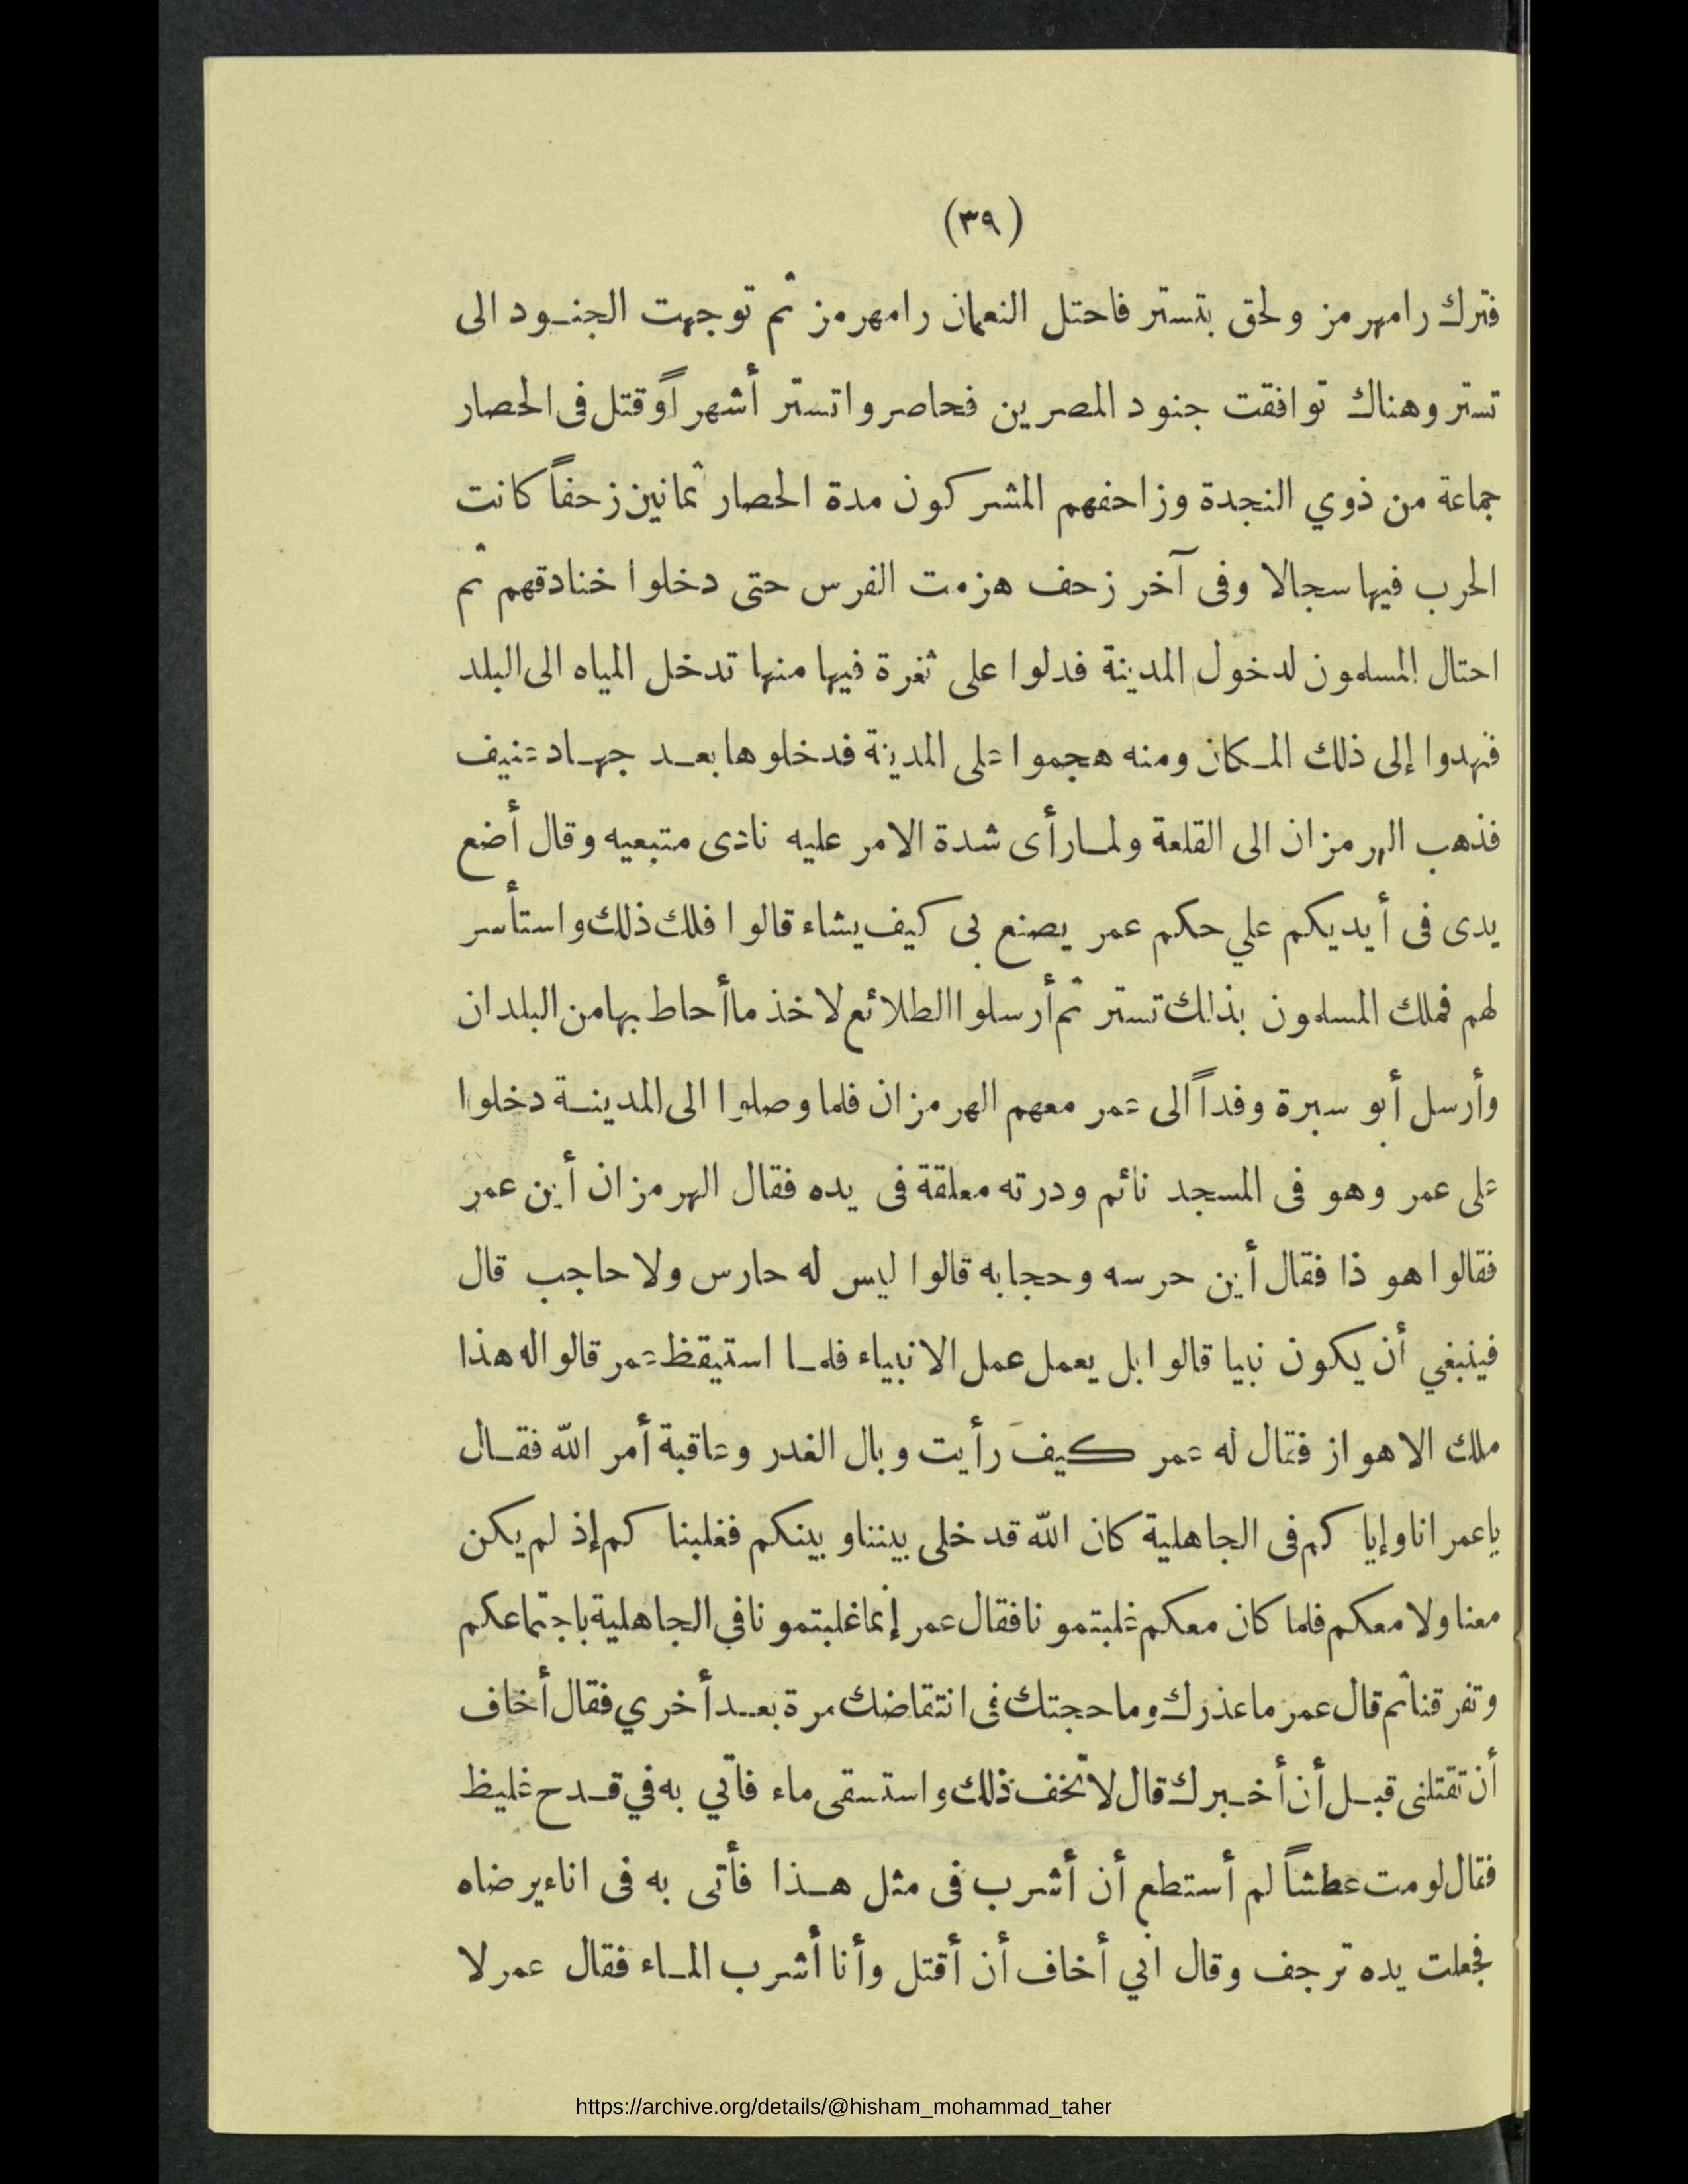 (٣٩)
فترك رامهرمز ولحق بتستر فاحتل النعمان رامهرمز ثم توجهت الجنود الى
تستر وهناك توافقت جنود المصرين فحاصروا تستر أشهراً وقتل فى الحصار
جماعة من ذوي النجدة وزاحفهم المشركون مدة الحصار ثمانين زحفاً كانت
الحرب فيها سجالا وفى آخر زحف هزمت الفرس حتى دخلوا خنادقهم ثم
احتال المسلمون لدخول المدينة فدلوا على ثغرة فيها منها تدخل المياه الى البلد
فنهدوا إلى ذلك المكان ومنه هجموا على المدينة فدخلوها بعد جهاد عنيف
فذهب الهرمزان الى القلعة ولما رأى شدة الامر عليه نادى متبعيه وقال أضع
يدى فى أيديكم علي حكم عمر يصنع بى كيف يشاء قالوا فلك ذلك واستأسر
لهم فملك المسلمون بذلك تستر ثم أرسلوا الطلائع لاخذ ما أحاط بها من البلدان
وأرسل أبو سبرة وفداً الى عمر معهم الهرمزان فلما وصلوا الى المدينة دخلوا
على عمر وهو فى المسجد نائم ودرته معلقة فى يده فقال الهرمزان أين عمر
فقالوا هو ذا فقال أين حرسه وحجابه قالوا ليس له حارس ولا حاجب قال
فينبغي أن يكون نبيا قالوا بل يعمل عمل الانبياء فلما استيقظ عمر قالوا له هذا
ملك الاهواز فقال له عمر كيفَ رأيت وبال الغدر وعاقبة أمر الله فقال
ياعمر انا وإياكم فى الجاهلية كان الله قد خلى بيننا وبينكم فغلبناكم إذ لم يكن
معنا ولا معكم فلما كان معكم غلبتمونا فقال عمر إنما غلبتمونا في الجاهلية باجتماعكم
وتفرقنا ثم قال عمر ما عذرك وما حجتك فى انتقاضك مرة بعد أخري فقال أخاف
أن تقتلنى قبل أن أخبرك قال لا تخف ذلك واستسقى ماء فأتي به في قدح غليظ
فقال لو مت عطشاً لم أستطع أن أشرب فى مثل هذا فأتى به فى اناء يرضاه
فجعلت يده ترجف وقال اني أخاف أن أقتل وأنا أشرب الماء فقال عمر لا
https://archive.org/details/@hisham_mohammad_taher